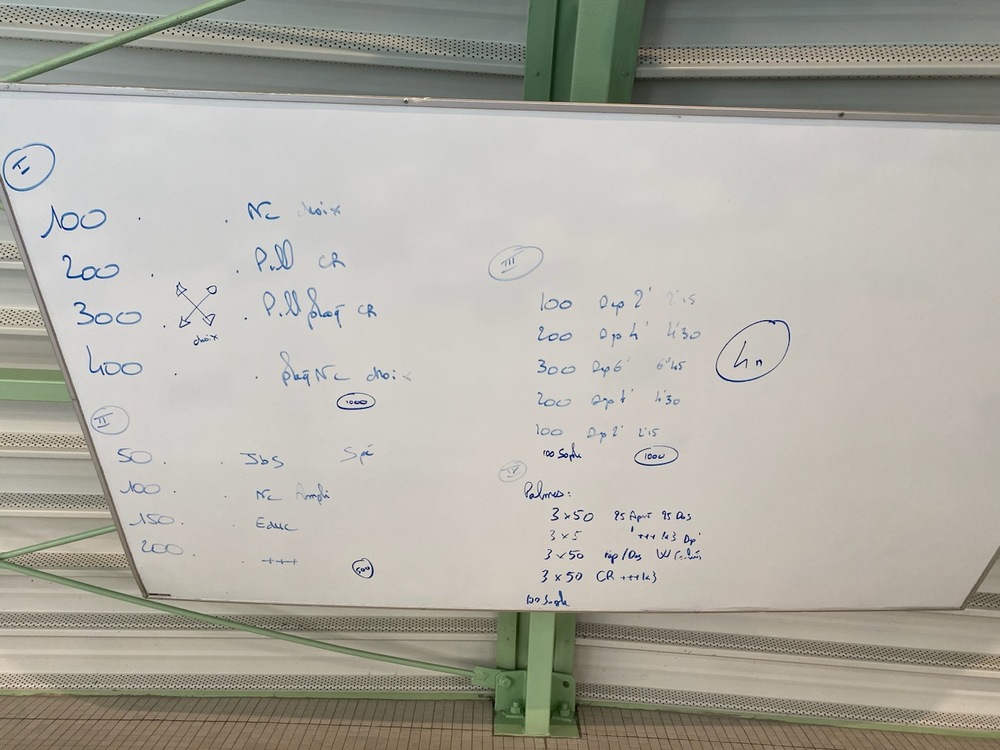 I
100 . . NC choix
200 . . Pull CR
300 . . Pull plaq CR
choix
400 . . plaq NC choix
1000
II
50 . . Jbs Spé
100 . . NC Ampli
150 . . Educ
200 . . +++
500
III
100 Dep 2' 2'15
200 Dep 4' 4'30
300 Dep 6' 6'45
200 Dep 4' 4'30
100 Dep 2' 2'15
100 Soupl
1000
IV
Palmes:
3 x 50 25 25 Dos
3 x 5 +++
3 x 50 /Dos
3 x 50 CR +++
100 Soupl